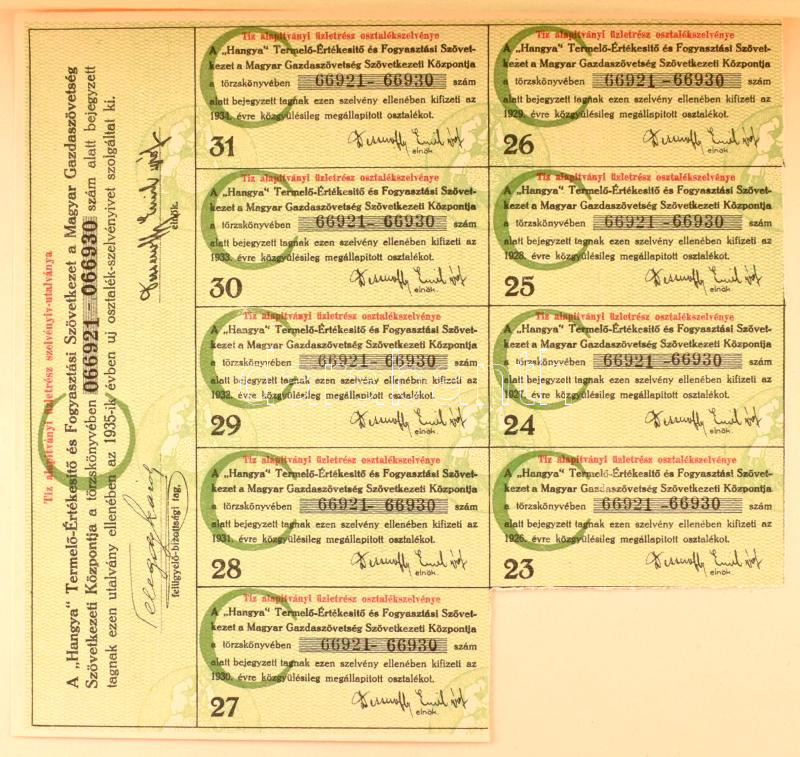 Tiz alapitványi üzletrész szelvényiv-utalványa
A „Hangya" Termelő-Értékesitő és Fogyasztási Szövetkezet a Magyar Gazdaszövetség
Szövetkezeti Központja a törzskönyvében 066921-066930 szám alatt bejegyzett
tagnak ezen utalvány ellenében az 1935-ik évben uj osztalék-szelvényivet szolgáltat ki.
elnök.
felügyelő-bizottsági tag.
Tiz alapitványi üzletrész osztalékszelvénye
A „Hangya" Termelő-Értékesitő és Fogyasztási Szövet-
kezet a Magyar Gazdaszövetség Szövetkezeti Központja
a törzskönyvében 66921-66930 szám
alatt bejegyzett tagnak ezen szelvény ellenében kifizeti az
1934. évre közgyülésileg megállapitott osztalékot.
31
elnök.
Tiz alapitványi üzletrész osztalékszelvénye
A „Hangya" Termelő-Értékesitő és Fogyasztási Szövet-
kezet a Magyar Gazdaszövetség Szövetkezeti Központja
a törzskönyvében 66921-66930 szám
alatt bejegyzett tagnak ezen szelvény ellenében kifizeti az
1933. évre közgyülésileg megállapitott osztalékot.
30
elnök.
Tiz alapitványi üzletrész osztalékszelvénye
A „Hangya" Termelő-Értékesitő és Fogyasztási Szövet-
kezet a Magyar Gazdaszövetség Szövetkezeti Központja
a törzskönyvében 66921-66930 szám
alatt bejegyzett tagnak ezen szelvény ellenében kifizeti az
1932. évre közgyülésileg megállapitott osztalékot.
29
elnök.
Tiz alapitványi üzletrész osztalékszelvénye
A „Hangya" Termelő-Értékesitő és Fogyasztási Szövet-
kezet a Magyar Gazdaszövetség Szövetkezeti Központja
a törzskönyvében 66921-66930 szám
alatt bejegyzett tagnak ezen szelvény ellenében kifizeti az
1931. évre közgyülésileg megállapitott osztalékot.
28
elnök.
Tiz alapitványi üzletrész osztalékszelvénye
A „Hangya" Termelő-Értékesitő és Fogyasztási Szövet-
kezet a Magyar Gazdaszövetség Szövetkezeti Központja
a törzskönyvében 66921-66930 szám
alatt bejegyzett tagnak ezen szelvény ellenében kifizeti az
1930. évre közgyülésileg megállapitott osztalékot.
27
elnök.
Tiz alapitványi üzletrész osztalékszelvénye
A „Hangya" Termelő-Értékesitő és Fogyasztási Szövet-
kezet a Magyar Gazdaszövetség Szövetkezeti Központja
a törzskönyvében 66921-66930 szám
alatt bejegyzett tagnak ezen szelvény ellenében kifizeti az
1929. évre közgyülésileg megállapitott osztalékot.
26
elnök.
Tiz alapitványi üzletrész osztalékszelvénye
A „Hangya" Termelő-Értékesitő és Fogyasztási Szövet-
kezet a Magyar Gazdaszövetség Szövetkezeti Központja
a törzskönyvében 66921-66930 szám
alatt bejegyzett tagnak ezen szelvény ellenében kifizeti az
1928. évre közgyülésileg megállapitott osztalékot.
25
elnök.
Tiz alapitványi üzletrész osztalékszelvénye
A „Hangya" Termelő-Értékesitő és Fogyasztási Szövet-
kezet a Magyar Gazdaszövetség Szövetkezeti Központja
a törzskönyvében 66921-66930 szám
alatt bejegyzett tagnak ezen szelvény ellenében kifizeti az
1927. évre közgyülésileg megállapitott osztalékot.
24
elnök.
Tiz alapitványi üzletrész osztalékszelvénye
A „Hangya" Termelő-Értékesitő és Fogyasztási Szövet-
kezet a Magyar Gazdaszövetség Szövetkezeti Központja
a törzskönyvében 66921-66930 szám
alatt bejegyzett tagnak ezen szelvény ellenében kifizeti az
1926. évre közgyülésileg megállapitott osztalékot.
23
elnök.